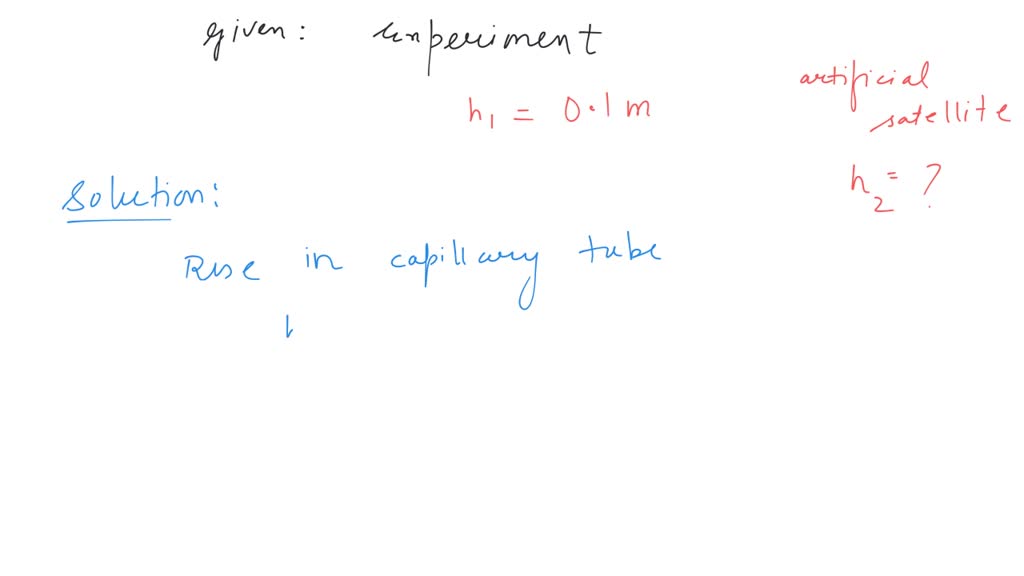 given: Experiment
h₁ = 0.1 m
artificial
satellite
h₂ = ?
Solution:
Rise in capillary tube
h